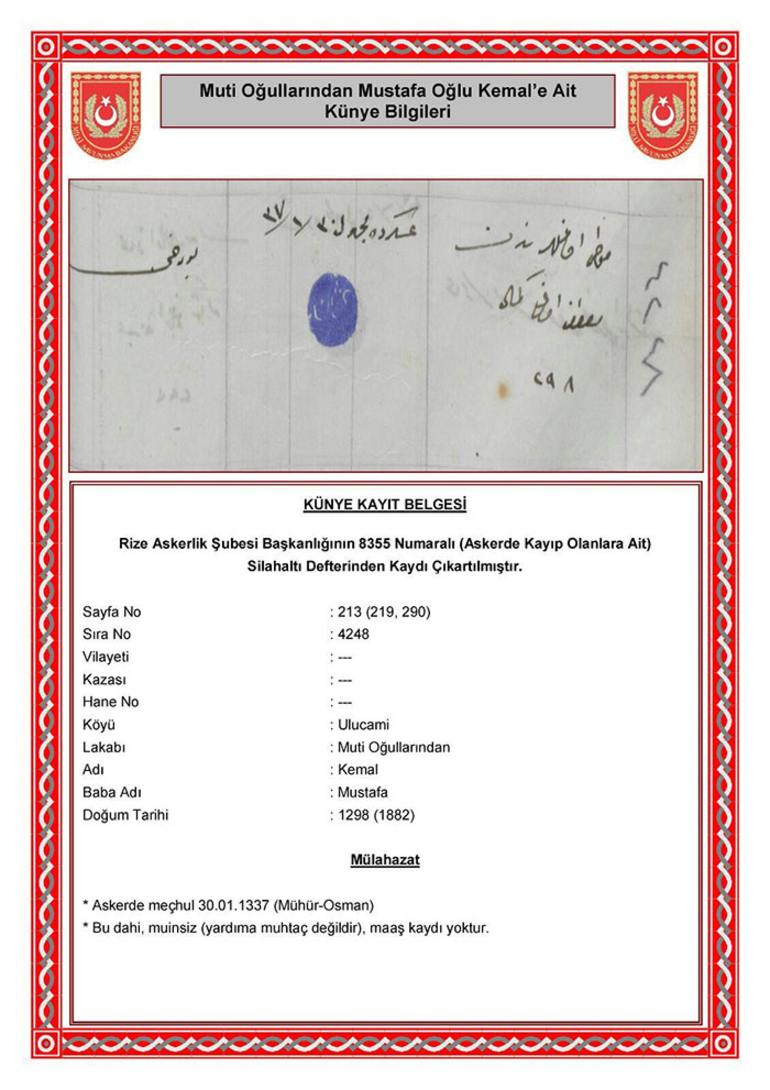 Muti Oğullarından Mustafa Oğlu Kemal’e Ait
Künye Bilgileri
MİLLİ SAVUNMA BAKANLIĞI
MİLLİ SAVUNMA BAKANLIĞI
عسكرده مجهول ٣٠ / ١ / ٣٧
اوغللرندن
مصطفى اوغلى كمال
٢٩٨
KÜNYE KAYIT BELGESİ
Rize Askerlik Şubesi Başkanlığının 8355 Numaralı (Askerde Kayıp Olanlara Ait)
Silahaltı Defterinden Kaydı Çıkartılmıştır.
Sayfa No : 213 (219, 290)
Sıra No : 4248
Vilayeti : ---
Kazası : ---
Hane No : ---
Köyü : Ulucami
Lakabı : Muti Oğullarından
Adı : Kemal
Baba Adı : Mustafa
Doğum Tarihi : 1298 (1882)
Mülahazat
* Askerde meçhul 30.01.1337 (Mühür-Osman)
* Bu dahi, muinsiz (yardıma muhtaç değildir), maaş kaydı yoktur.